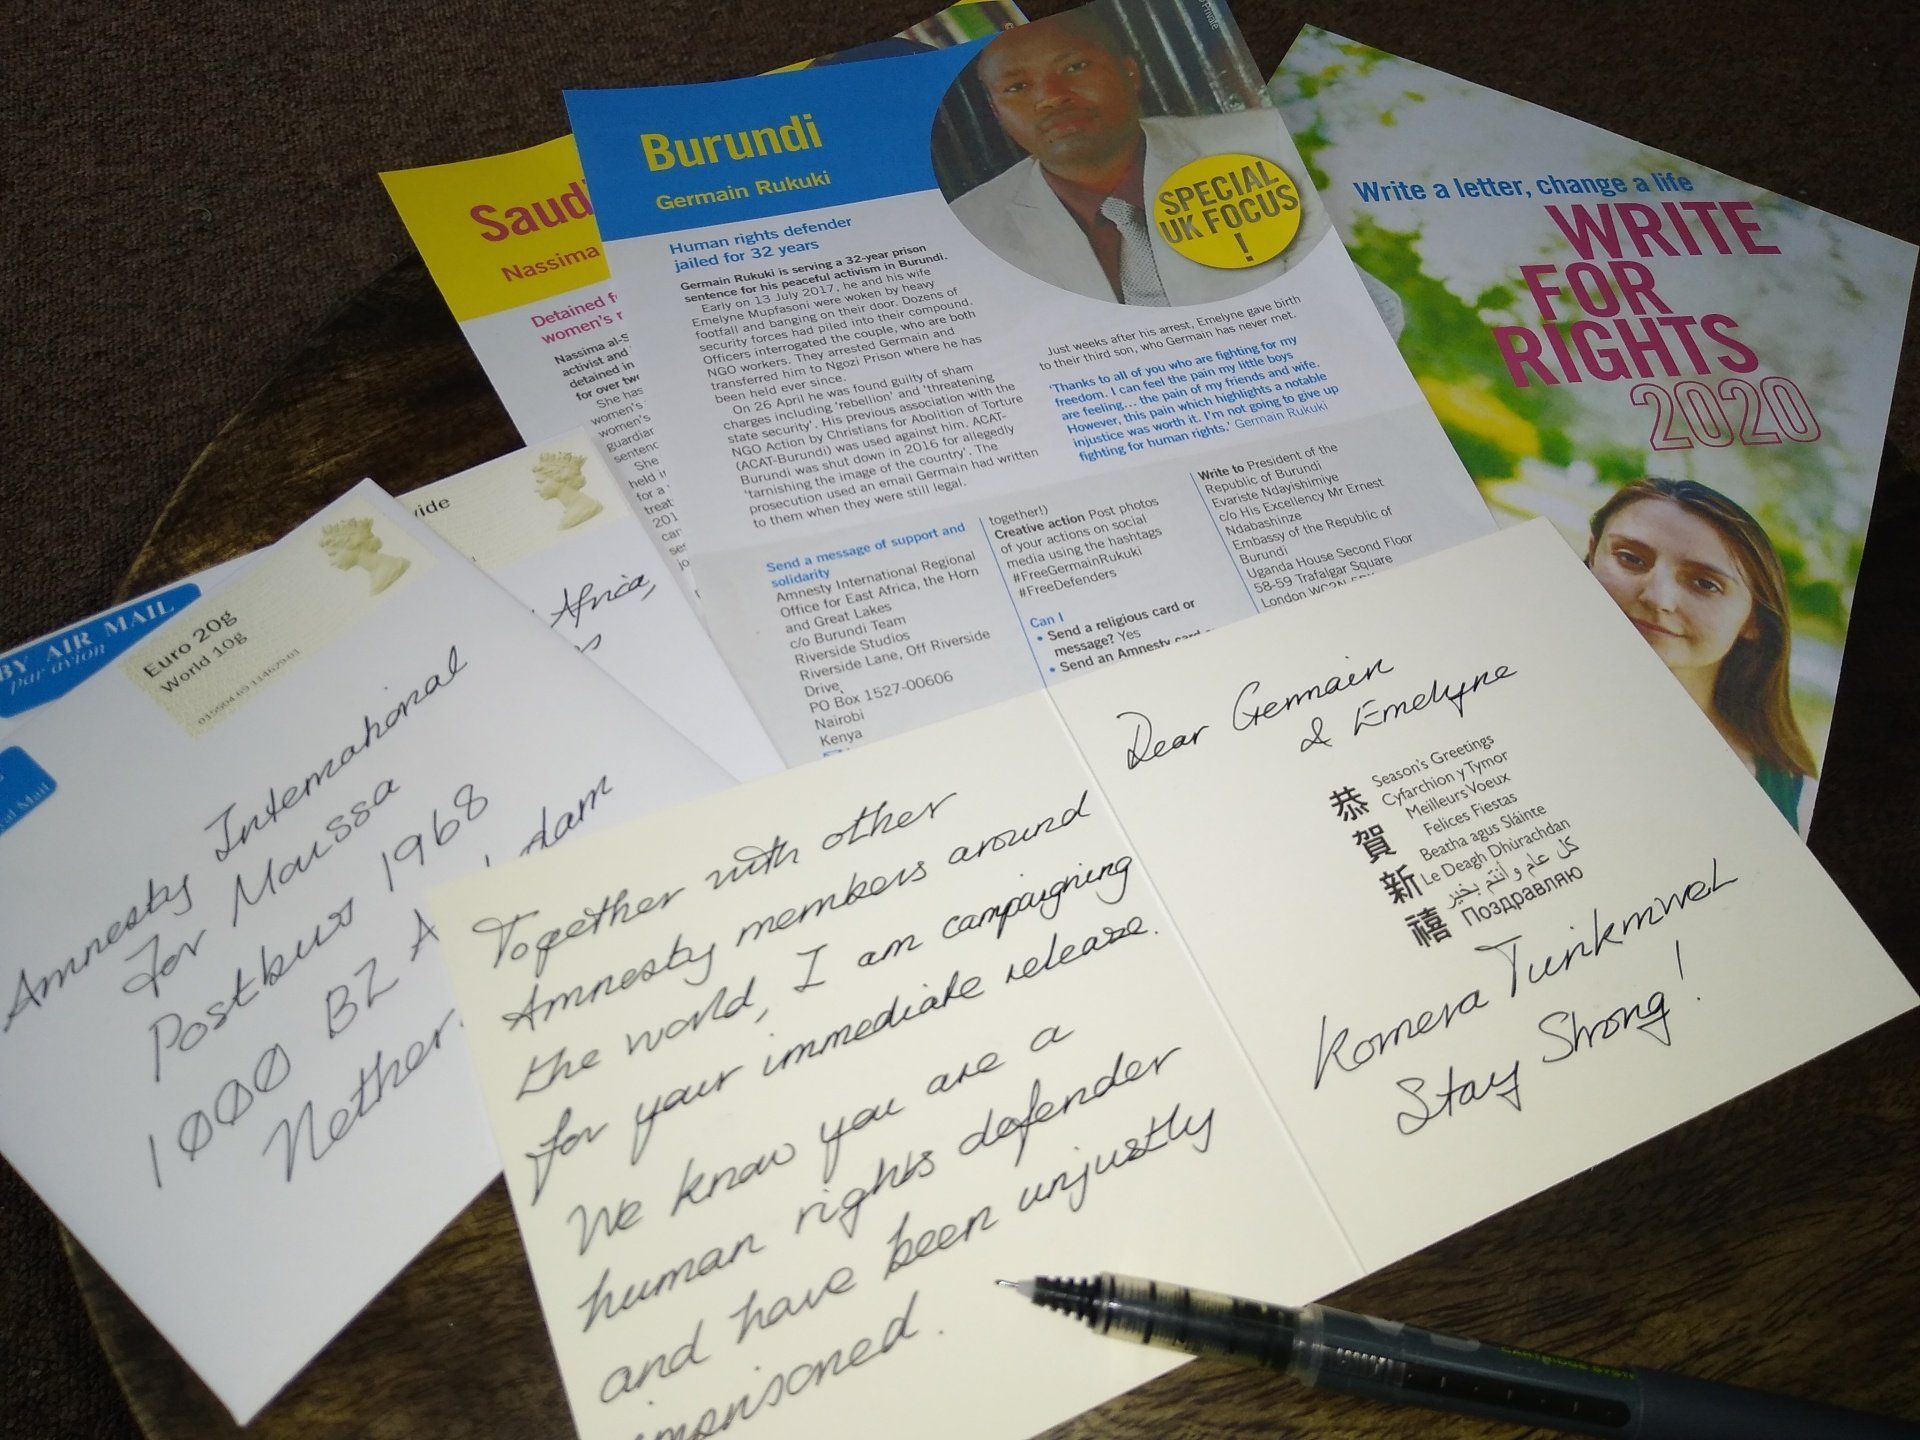 Saudi
Nassima
Detained f
women's r
Nassima al-S
activist and
detained in
for over tw
She has
women's
women's
guardian
sentenc
She
held i
for a
treat
201
can
se
jo
Burundi
Germain Rukuki
SPECIAL
UK FOCUS
!
Human rights defender
jailed for 32 years
Germain Rukuki is serving a 32-year prison
sentence for his peaceful activism in Burundi.
Early on 13 July 2017, he and his wife
Emelyne Mupfasoni were woken by heavy
footfall and banging on their door. Dozens of
security forces had piled into their compound.
Officers interrogated the couple, who are both
NGO workers. They arrested Germain and
transferred him to Ngozi Prison where he has
been held ever since.
On 26 April he was found guilty of sham
charges including 'rebellion' and 'threatening
state security'. His previous association with the
NGO Action by Christians for Abolition of Torture
(ACAT-Burundi) was used against him. ACAT-
Burundi was shut down in 2016 for allegedly
'tarnishing the image of the country'. The
prosecution used an email Germain had written
to them when they were still legal.
Just weeks after his arrest, Emelyne gave birth
to their third son, who Germain has never met.
'Thanks to all of you who are fighting for my
freedom. I can feel the pain my little boys
are feeling... the pain of my friends and wife.
However, this pain which highlights a notable
injustice was worth it. I'm not going to give up
fighting for human rights.' Germain Rukuki
Send a message of support and
solidarity
Amnesty International Regional
Office for East Africa, the Horn
and Great Lakes
c/o Burundi Team
Riverside Studios
Riverside Lane, Off Riverside
Drive,
PO Box 1527-00606
Nairobi
Kenya
together!)
Creative action Post photos
of your actions on social
media using the hashtags
#FreeGermainRukuki
#FreeDefenders
Can I
• Send a religious card or
message? Yes
• Send an Amnesty card
Write to President of the
Republic of Burundi
Evariste Ndayishimiye
c/o His Excellency Mr Ernest
Ndabashinze
Embassy of the Republic of
Burundi
Uganda House Second Floor
58-59 Trafalgar Square
London
Write a letter, change a life
WRITE
FOR
RIGHTS
2020
BY AIR MAIL
par avion
Euro 20g
World 10g
Amnesty International
For Moussa
Postbus 1968
1000 BZ A dam
Nether
Africa,
Together with other
Amnesty members around
the world, I am campaigning
for your immediate release.
We know you are a
human rights defender
and have been unjustly
imprisoned.
Dear Germain
& Emelyne
恭賀新禧
Season's Greetings
Cyfarchion y Tymor
Meilleurs Voeux
Felices Fiestas
Beatha agus Sláinte
Le Deagh Dhùrachdan
كل عام و أنتم بخير
Поздравляю
Komera Turikmwe
Stay Strong!